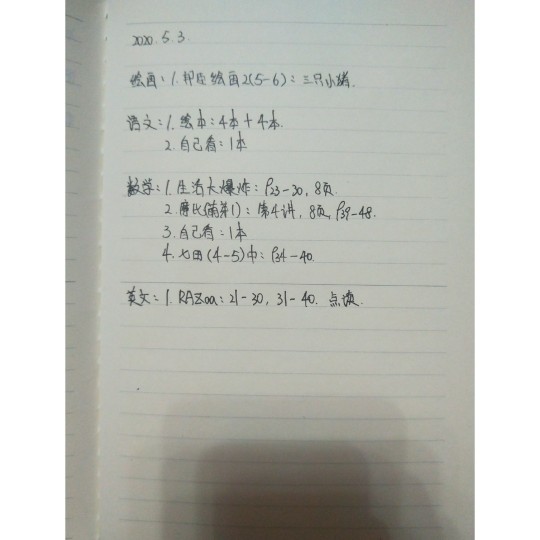 2020.5.3.
绘画：1.邦臣绘画2(5-6)：三只小猪.
语文：1.绘本：4本+4本.
2.自己看：1本
数学：1.生活大爆炸：P23-30, 8页.
2.摩比(第1)：第4讲, 8页, P39-48.
3.自己看：1本
4.七田(4-5)中：P34-40.
英文：1.RAZaa：21-30, 31-40. 点读.